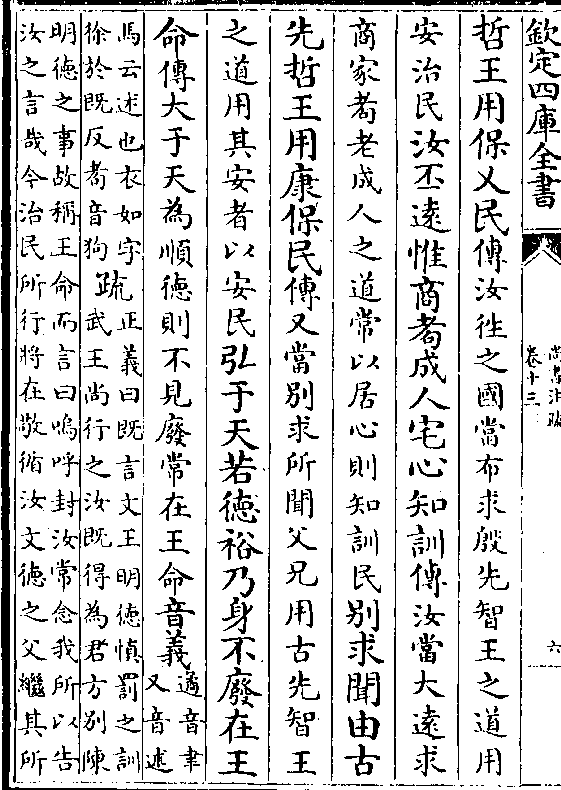 欽定四庫全書
尚書注疏
卷十三
六
哲王用保乂民傳汝徃之國當布求殷先智王之道用
安治民汝丕遠惟商耇成人宅心知訓傳汝當大遠求
商家耇老成人之道常以居心則知訓民别求聞由古
先哲王用康保民傳又當别求所聞父兄用古先智王
之道用其安者以安民弘于天若德裕乃身不廢在王
命傳大于天為順德則不見廢常在王命音義
遹音聿
又音述
馬云述也衣如字
徐於既反耇音狗
疏
正義曰既言文王明德慎罰之訓
武王尚行之汝既得為君方别陳
明德之事故稱王命而言曰嗚呼封汝常念我所以告
汝之言哉今治民所行將在敬循汝文德之父繼其所